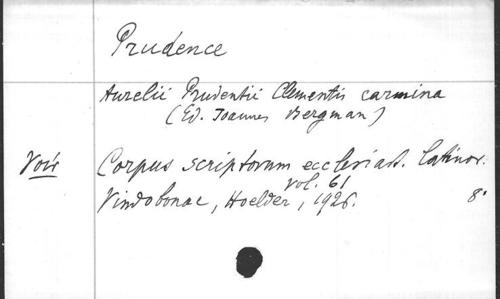 Prudence
Aurelii Prudentii Clementis carmina
(Ed. Joannes Bergman)
Voir Corpus scriptorum ecclesiast. latinor.
vol. 61
Vindobonae, Hoelder, 1926. 8°